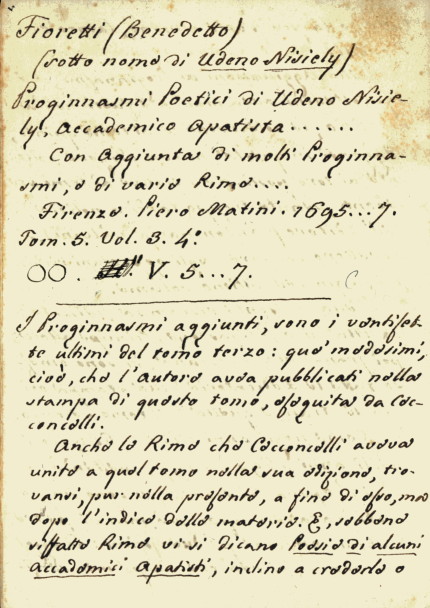 Fioretti (Benedetto)
(sotto nome di Udeno Nisiely)
Proginnasmi Poetici di Udeno Nisie-
ly, Accademico Apatista......
Con Aggiunta di molti Proginna-
smi, e di varie Rime....
Firenze. Piero Matini. 1695...7.
Tom. 5. Vol. 3. 4º
OO. V. 5...7.
I Proginnasmi aggiunti, sono i ventiset-
te ultimi del tomo terzo: que' medesimi,
cioè, che l'Autore avea pubblicati nella
stampa di questo tomo, eseguita da Coc-
concelli.
Anche le Rime che Cocconcelli aveva
unite a quel tomo nella sua edizione, tro-
vansi, pur nella presente, a fine di esso, ma
dopo l'indice delle materie. E, sebbene
siffatte Rime vi si dicano Poesie di alcuni
Accademici Apatisti, inclino a crederle o